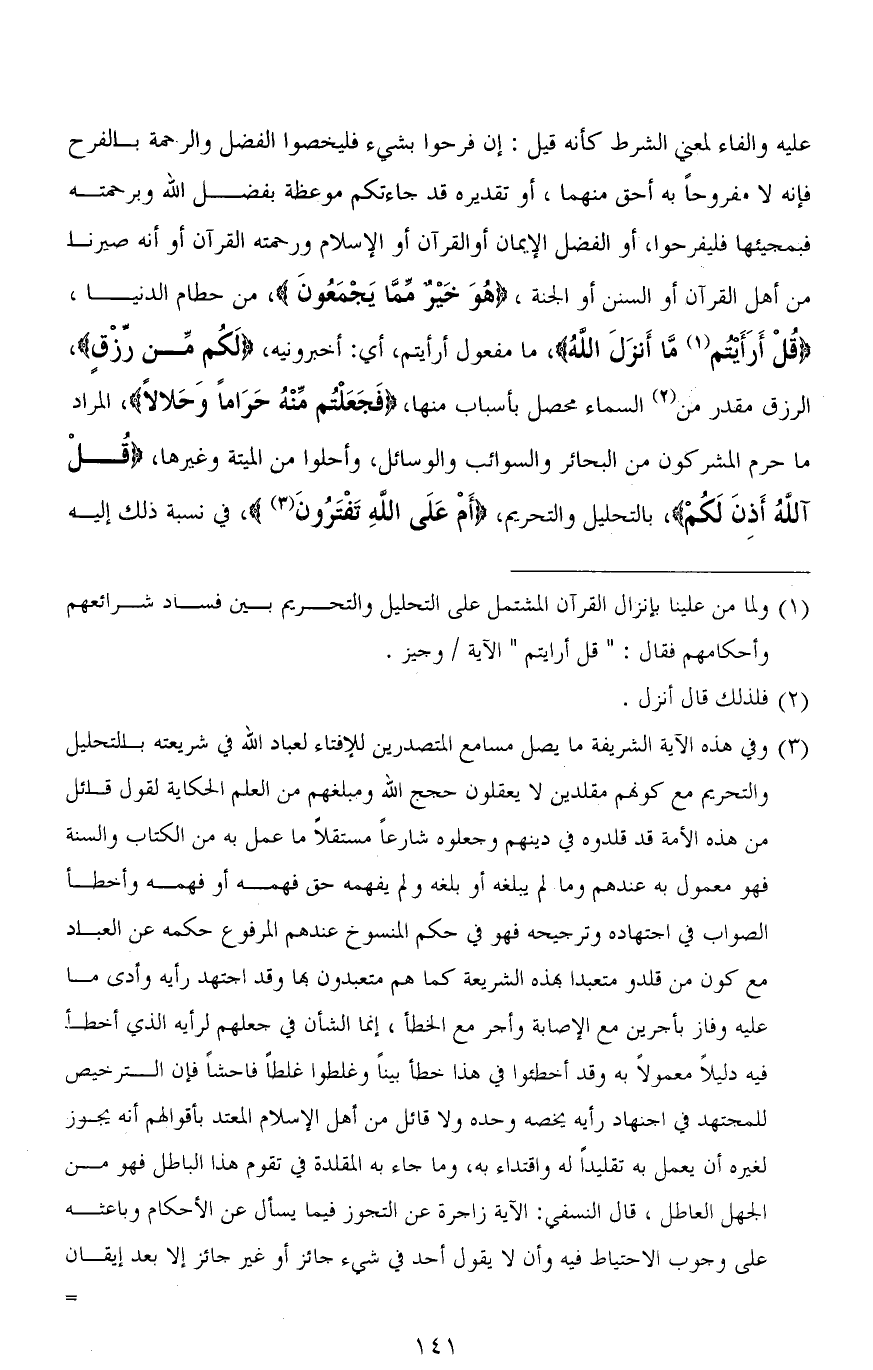 عليه والفاء لمعنى الشرط كأنه قيل : إن فرحوا بشيء فليخصوا الفضل والرحمة بـالفرح
فإنه لا مفروحاً به أحق منهما ، أو تقديره قد جاءتكم موعظة بفضـــل الله وبرحمتـه
فبمجيئها فليفرحوا، أو الفضل الإيمان أوالقرآن أو الإسلام ورحمته القرآن أو أنه صيرنـا
من أهل القرآن أو السنن أو الجنة ، ﴿هُوَ خَيْرٌ مِّمَّا يَجْمَعُونَ ﴾، من حطام الدنيـــا ،
﴿قُلْ أَرَأَيْتُم(١) مَّا أَنزَلَ اللَّهُ﴾، ما مفعول أرأيتم، أي: أخبرونيه، ﴿لَكُم مِّـن رِّزْقٍ﴾،
الرزق مقدر من(٢) السماء محصل بأسباب منها، ﴿فَجَعَلْتُم مِّنْهُ حَرَاماً وَحَلالاً﴾، المراد
ما حرم المشركون من البحائر والسوائب والوسائل، وأحلوا من الميتة وغيرها، ﴿قُـــلْ
آللَّهُ أَذِنَ لَكُمْ﴾، بالتحليل والتحريم، ﴿أَمْ عَلَى اللَّهِ تَفْتَرُونَ(٣) ﴾، في نسبة ذلك إليـه
(١) ولما من علينا بإنزال القرآن المشتمل على التحليل والتحـــريم بـــين فســـاد شـــرائعهم
وأحكامهم فقال : " قل أرايتم " الآية / وجيز .
(٢) فلذلك قال أنزل .
(٣) وفي هذه الآية الشريفة ما يصل مسامع المتصدرين للإفتاء لعباد الله في شريعته بـالتحليل
والتحريم مع كونهم مقلدين لا يعقلون حجج الله ومبلغهم من العلم الحكاية لقول قـائل
من هذه الأمة قد قلدوه في دينهم وجعلوه شارعاً مستقلاً ما عمل به من الكتاب والسنة
فهو معمول به عندهم وما لم يبلغه أو بلغه ولم يفهمه حق فهمـــه أو فهمـــه وأخطـــأ
الصواب في اجتهاده وترجيحه فهو في حكم المنسوخ عندهم المرفوع حكمه عن العبـاد
مع كون من قلدو متعبدا بهذه الشريعة كما هم متعبدون بها وقد اجتهد رأيه وأدى مـا
عليه وفاز بأجرين مع الإصابة وأجر مع الخطأ ، إنما الشأن في جعلهم لرأيه الذي أخطـأ
فيه دليلاً معمولاً به وقد أخطئوا في هذا خطأ بيناً وغلطوا غلطاً فاحشاً فإن الـــترخيص
للمجتهد في اجتهاد رأيه يخصه وحده ولا قائل من أهل الإسلام المعتد بأقوالهم أنه يجـوز
لغيره أن يعمل به تقليداً له واقتداء به، وما جاء به المقلدة في تقوم هذا الباطل فهو مـــن
الجهل العاطل ، قال النسفي: الآية زاجرة عن التجوز فيما يسأل عن الأحكام وباعثـــه
على وجوب الاحتياط فيه وأن لا يقول أحد في شيء جائز أو غير جائز إلا بعد إيقـــان
=
١٤١